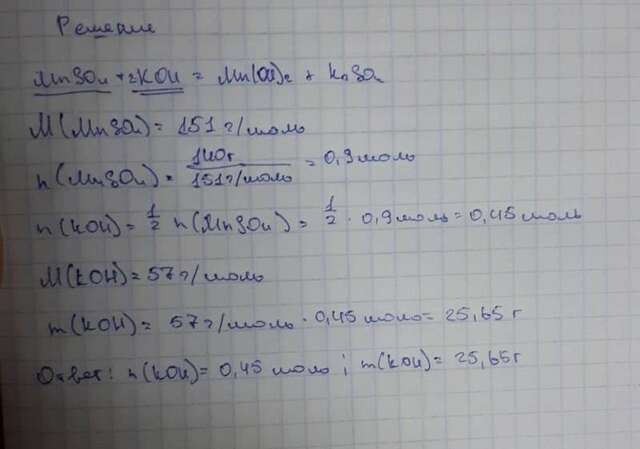 Решение
MnSO₄ + 2KOH = Mn(OH)₂ + K₂SO₄
M(MnSO₄) = 151 г/моль
n(MnSO₄) = 140г / 151 г/моль = 0,9 моль
n(KOH) = 1/2 n(MnSO₄) = 1/2 · 0,9 моль = 0,45 моль
M(KOH) = 57 г/моль
m(KOH) = 57 г/моль · 0,45 моль = 25,65 г
Ответ: n(KOH) = 0,45 моль; m(KOH) = 25,65г